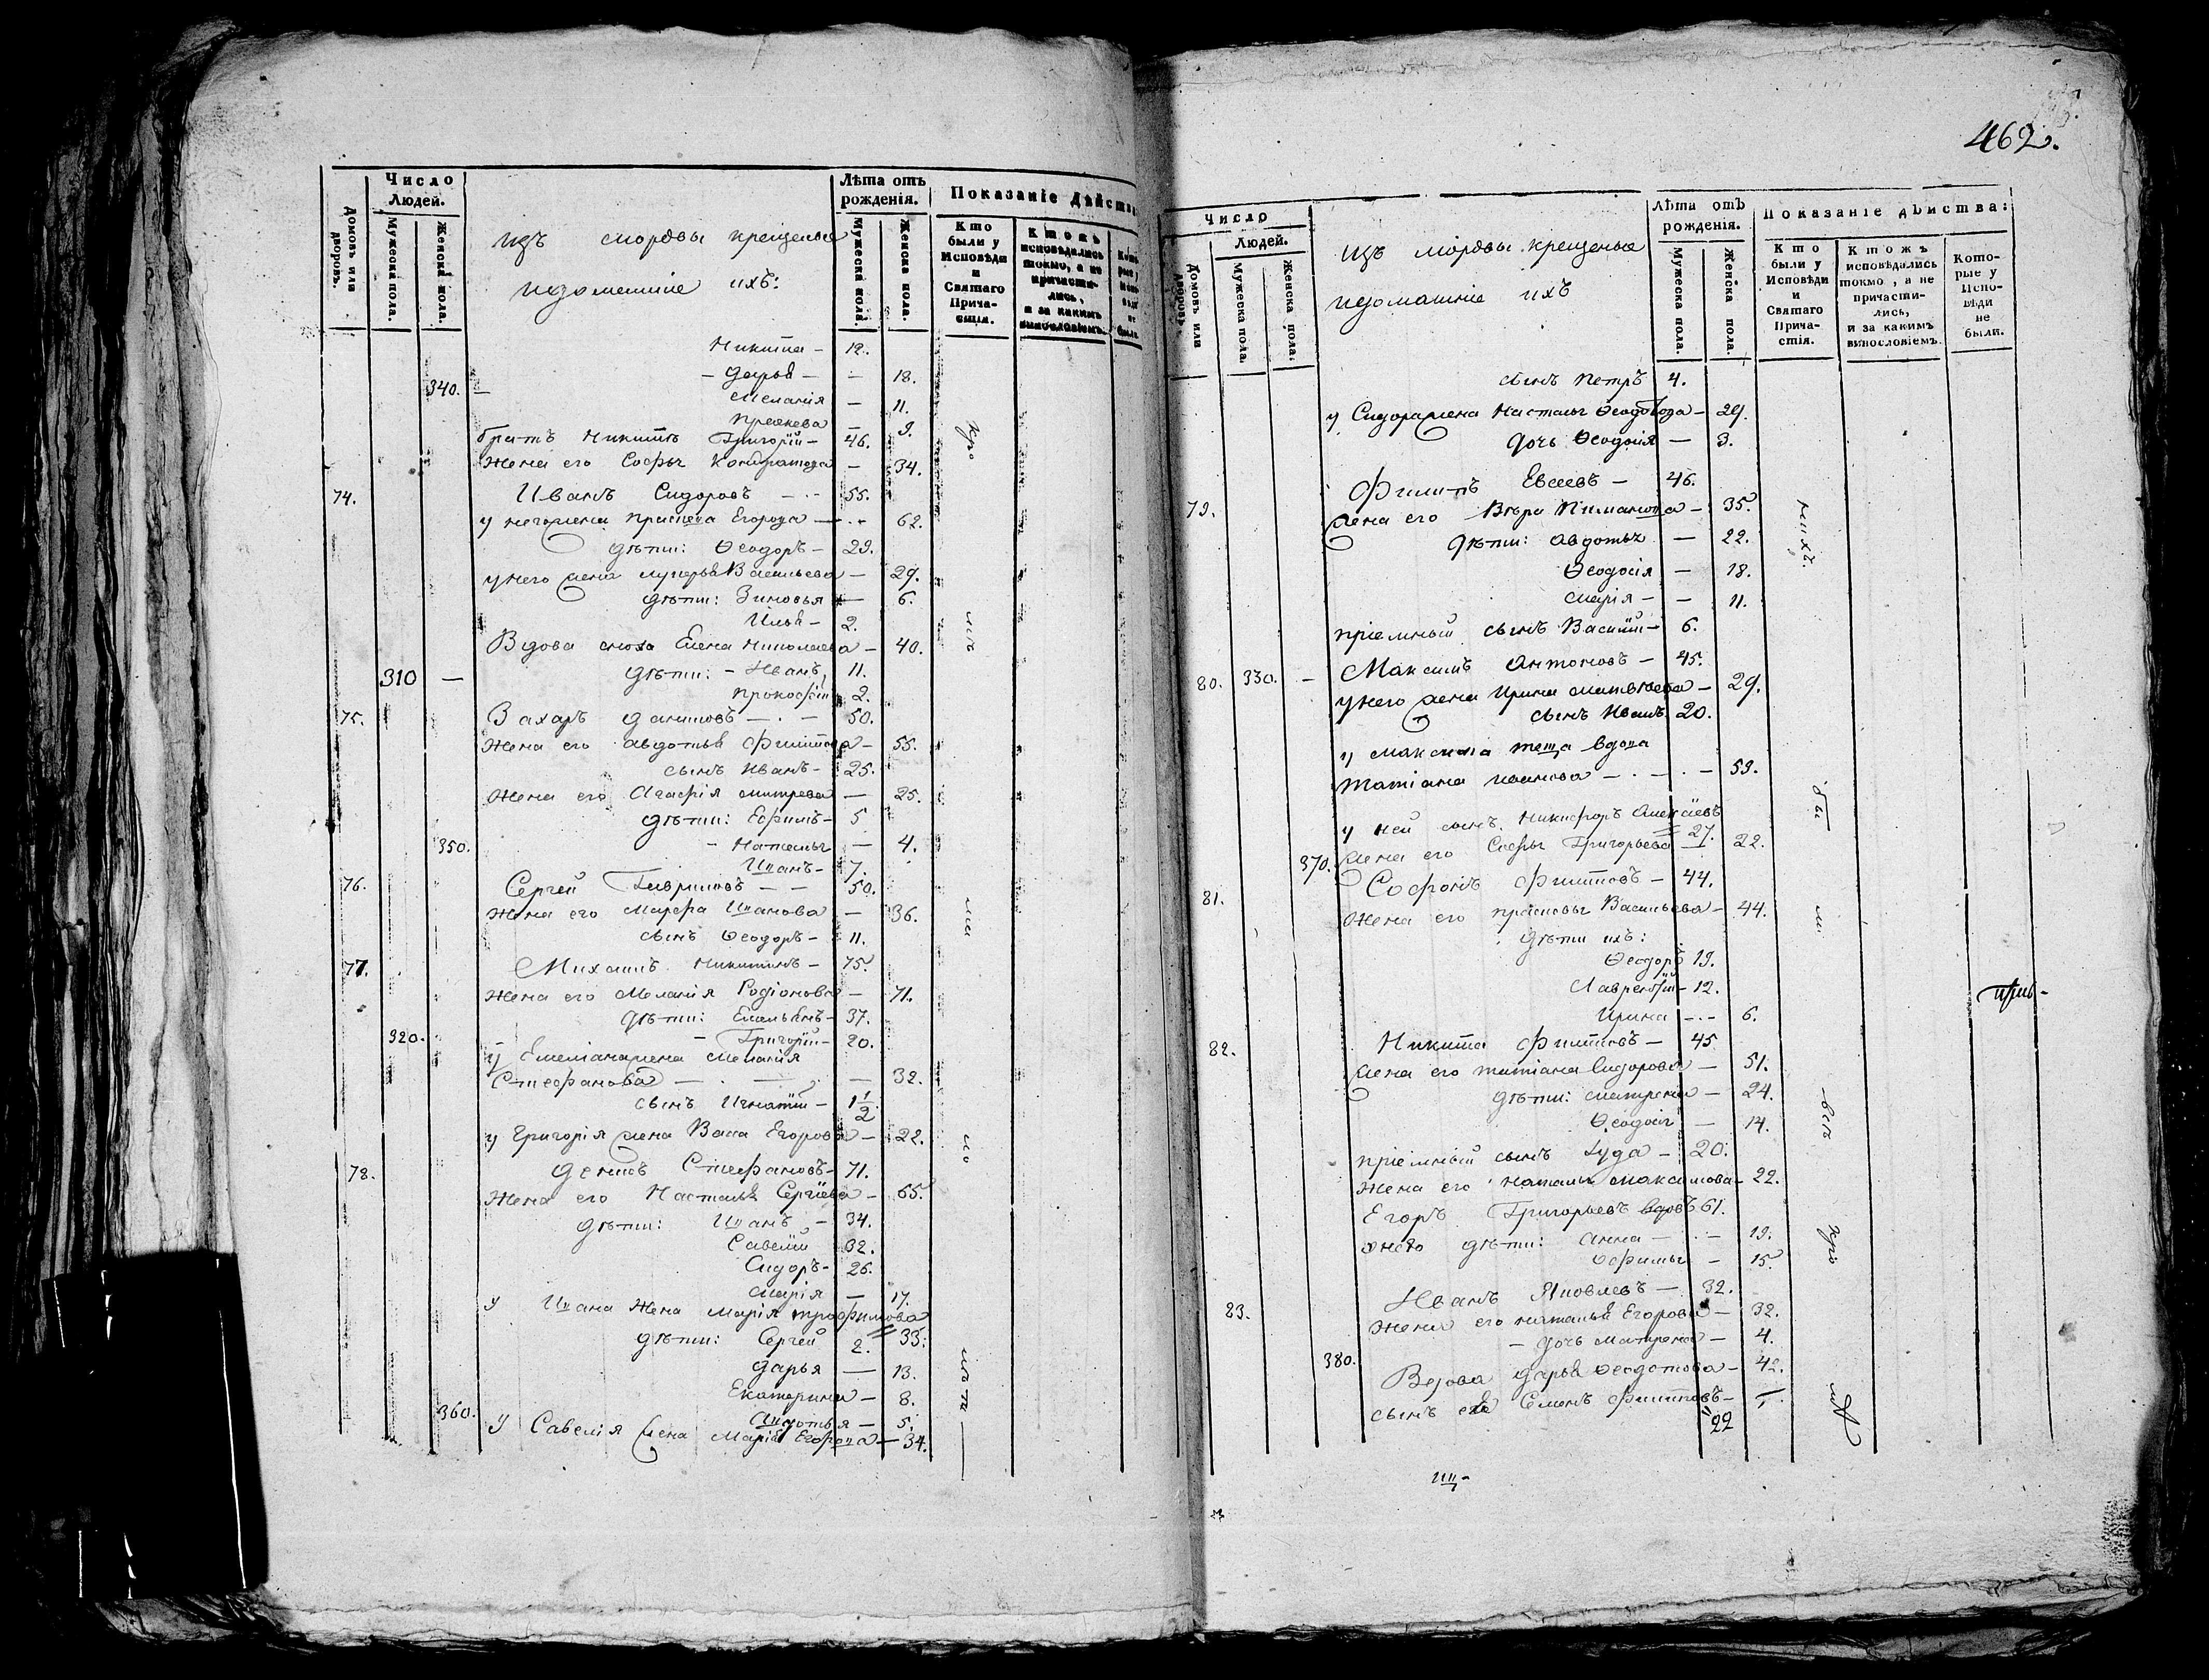 Число
Людей.
Домовъ или дворовъ.
Мужеска пола.
Женска пола.
изъ мордвы крещеные
и домашніе ихъ:
Лѣта отъ
рожденія.
Мужеска пола.
Женска пола.
Показаніе дѣйства
Кто были у Исповѣди и Святаго Прича-стія.
Ктожъ исповѣдались токмо, а не причасти-лись, и за какимъ винословіемъ.
Никита - 12.
- Дарья - - 18.
340. - Меланія - 11.
Праскева - 9.
братъ Никиты Григорій - 46.
Жена его Софья Кондратова - 34.
74. Иванъ Сидоровъ - - 55.
у него жена Праскева Егорова - - 62.
дѣти: Ѳеодоръ - 29.
у него жена Лукерья Васильева - 29.
дѣти: Зиновья - 6.
Илья - 2.
Вдова сноха Елена Николаева - 40.
310 - дѣти: - Иванъ, 11.
Прокофій 2.
75. Захаръ Даниловъ - . - 50.
Жена его Авдотья Филипова - 55.
сынъ Иванъ - 25.
Жена его Агафія Митрева - 25.
дѣти: Ефимъ - 5
350. - Наталья - 4.
Иванъ - 7.
76. Сергей Гавриловъ - - 50.
Жена его Марфа Иванова - 36.
сынъ Ѳеодоръ - 11.
77. Михаилъ Никитинъ - 75.
Жена его Меланія Родіонова - 71.
дѣти: Емельянъ - 37.
320. - Григорій - 20.
у Емеліана жена Меланія
Стефанова - . - . - 32.
сынъ Игнатій - 1 1/2
у Григорія жена Васа Егорова - 22.
78. Денисъ Стефановъ - 71.
Жена его Насталья Сергіева - 65.
дѣти: Иванъ, - 34.
Савелій 32.
Сидоръ - 26.
Марія - 17.
у Ивана Жена Марія Трофимова
дѣти: Сергей 2. 33.
Дарья - 13.
Екатерина - 8.
360. Авдотья - 5.
у Савелія жена Марія Егорова - 34.
462.
Число
Людей.
Домовъ или дворовъ.
Мужеска пола.
Женска пола.
изъ мордвы крещеные
и домашніе ихъ
Лѣта отъ
рожденія.
Мужеска пола.
Женска пола.
Показаніе дѣйства:
Кто были у Исповѣди и Святаго Прича-стія.
Ктожъ исповѣдались токмо, а не причасти-лись, и за какимъ винословіемъ.
Кото-рые у Испо-вѣди не были.
сынъ Петръ 4.
у Сидора жена Насталья - 29.
дочь Ѳеодосія - 3.
79. Филипъ Евсеевъ - 46.
жена его Вѣра Пиманова - 35.
дѣти: Авдотья - 22.
Ѳеодосія - 18.
Марія - - 11.
пріемный сынъ Василій - 6.
80. 330. - Максимъ Антоновъ - 45.
у него жена Ирина Матвѣева - 29.
сынъ Иванъ 20.
у Максима теща вдова
Татіана Иванова - . - . - 59.
у ней сынъ Никифоръ Алексіевъ
27.
370. жена его Софья Григорьева - 22.
81. Софонъ Филиповъ - 44.
Жена его Прасковья Васильева - 44.
дѣти ихъ:
Ѳеодоръ 19.
Лаврентій - 12.
Ирина - - - 6.
82. Никита Филиповъ - 45
жена его Татіана Сидорова - 51.
дѣти: Матрена - 24.
Ѳеодосія - 14.
пріемный сынъ Іуда - 20.
Жена его Наталья Максимова - 22.
Егоръ Григорьевъ вдовъ 61.
у него дѣти: Анна - . - 19.
Офимья - 15.
83. Иванъ Яковлевъ - 32.
Жена его Наталья Егорова - 32.
- дочь Матрена - 4.
380. Вдова Дарья Ѳеодотова - 42.
сынъ ея Семенъ Филиповъ -
22